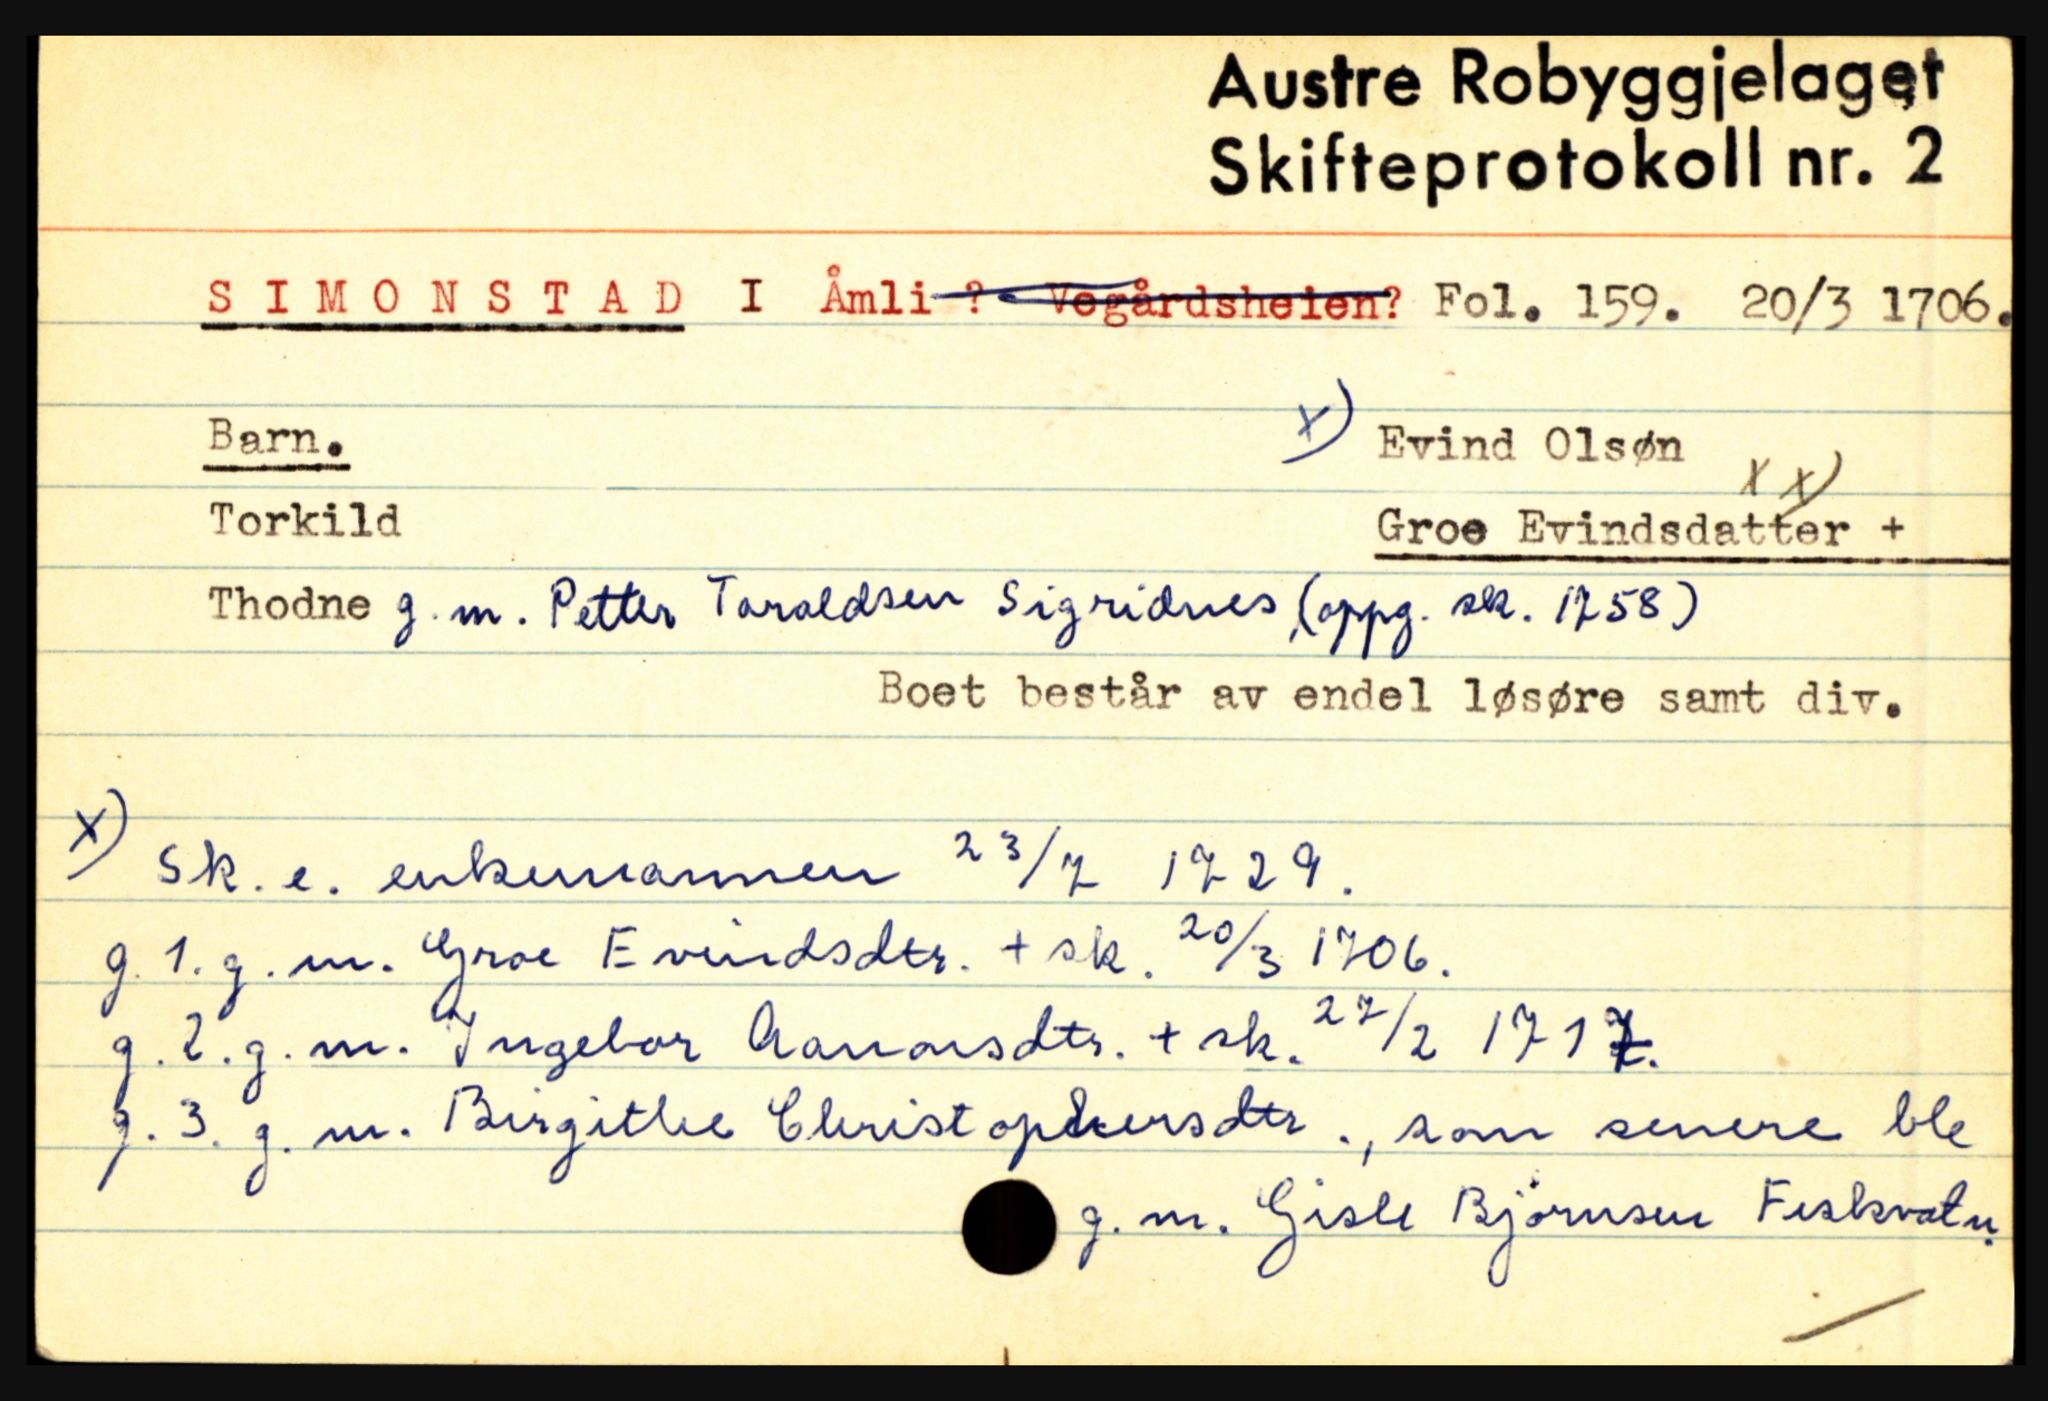 Austre Robyggjelaget
Skifteprotokoll nr. 2
SIMONSTAD I Åmli ? Vegårdsheien? Fol. 159. 20/3 1706.
Barn. x) Evind Olsøn
Torkild Groe Evindsdatter + xx)
Thodne g.m. Petter Taraldsen Sigridnes, (oppg. sk. 1758)
Boet består av endel løsøre samt div.
x) Sk. e. enkemannen 23/7 1729.
g. 1. g. m. Groe Evindsdtr. + sk. 20/3 1706.
g. 2. g. m. Ingebor Aanonsdtr. + sk. 27/2 1717.
g. 3. g. m. Birgithe Christophersdtr., som senere ble
g. m. Gisle Björnsen Fiskvatn.